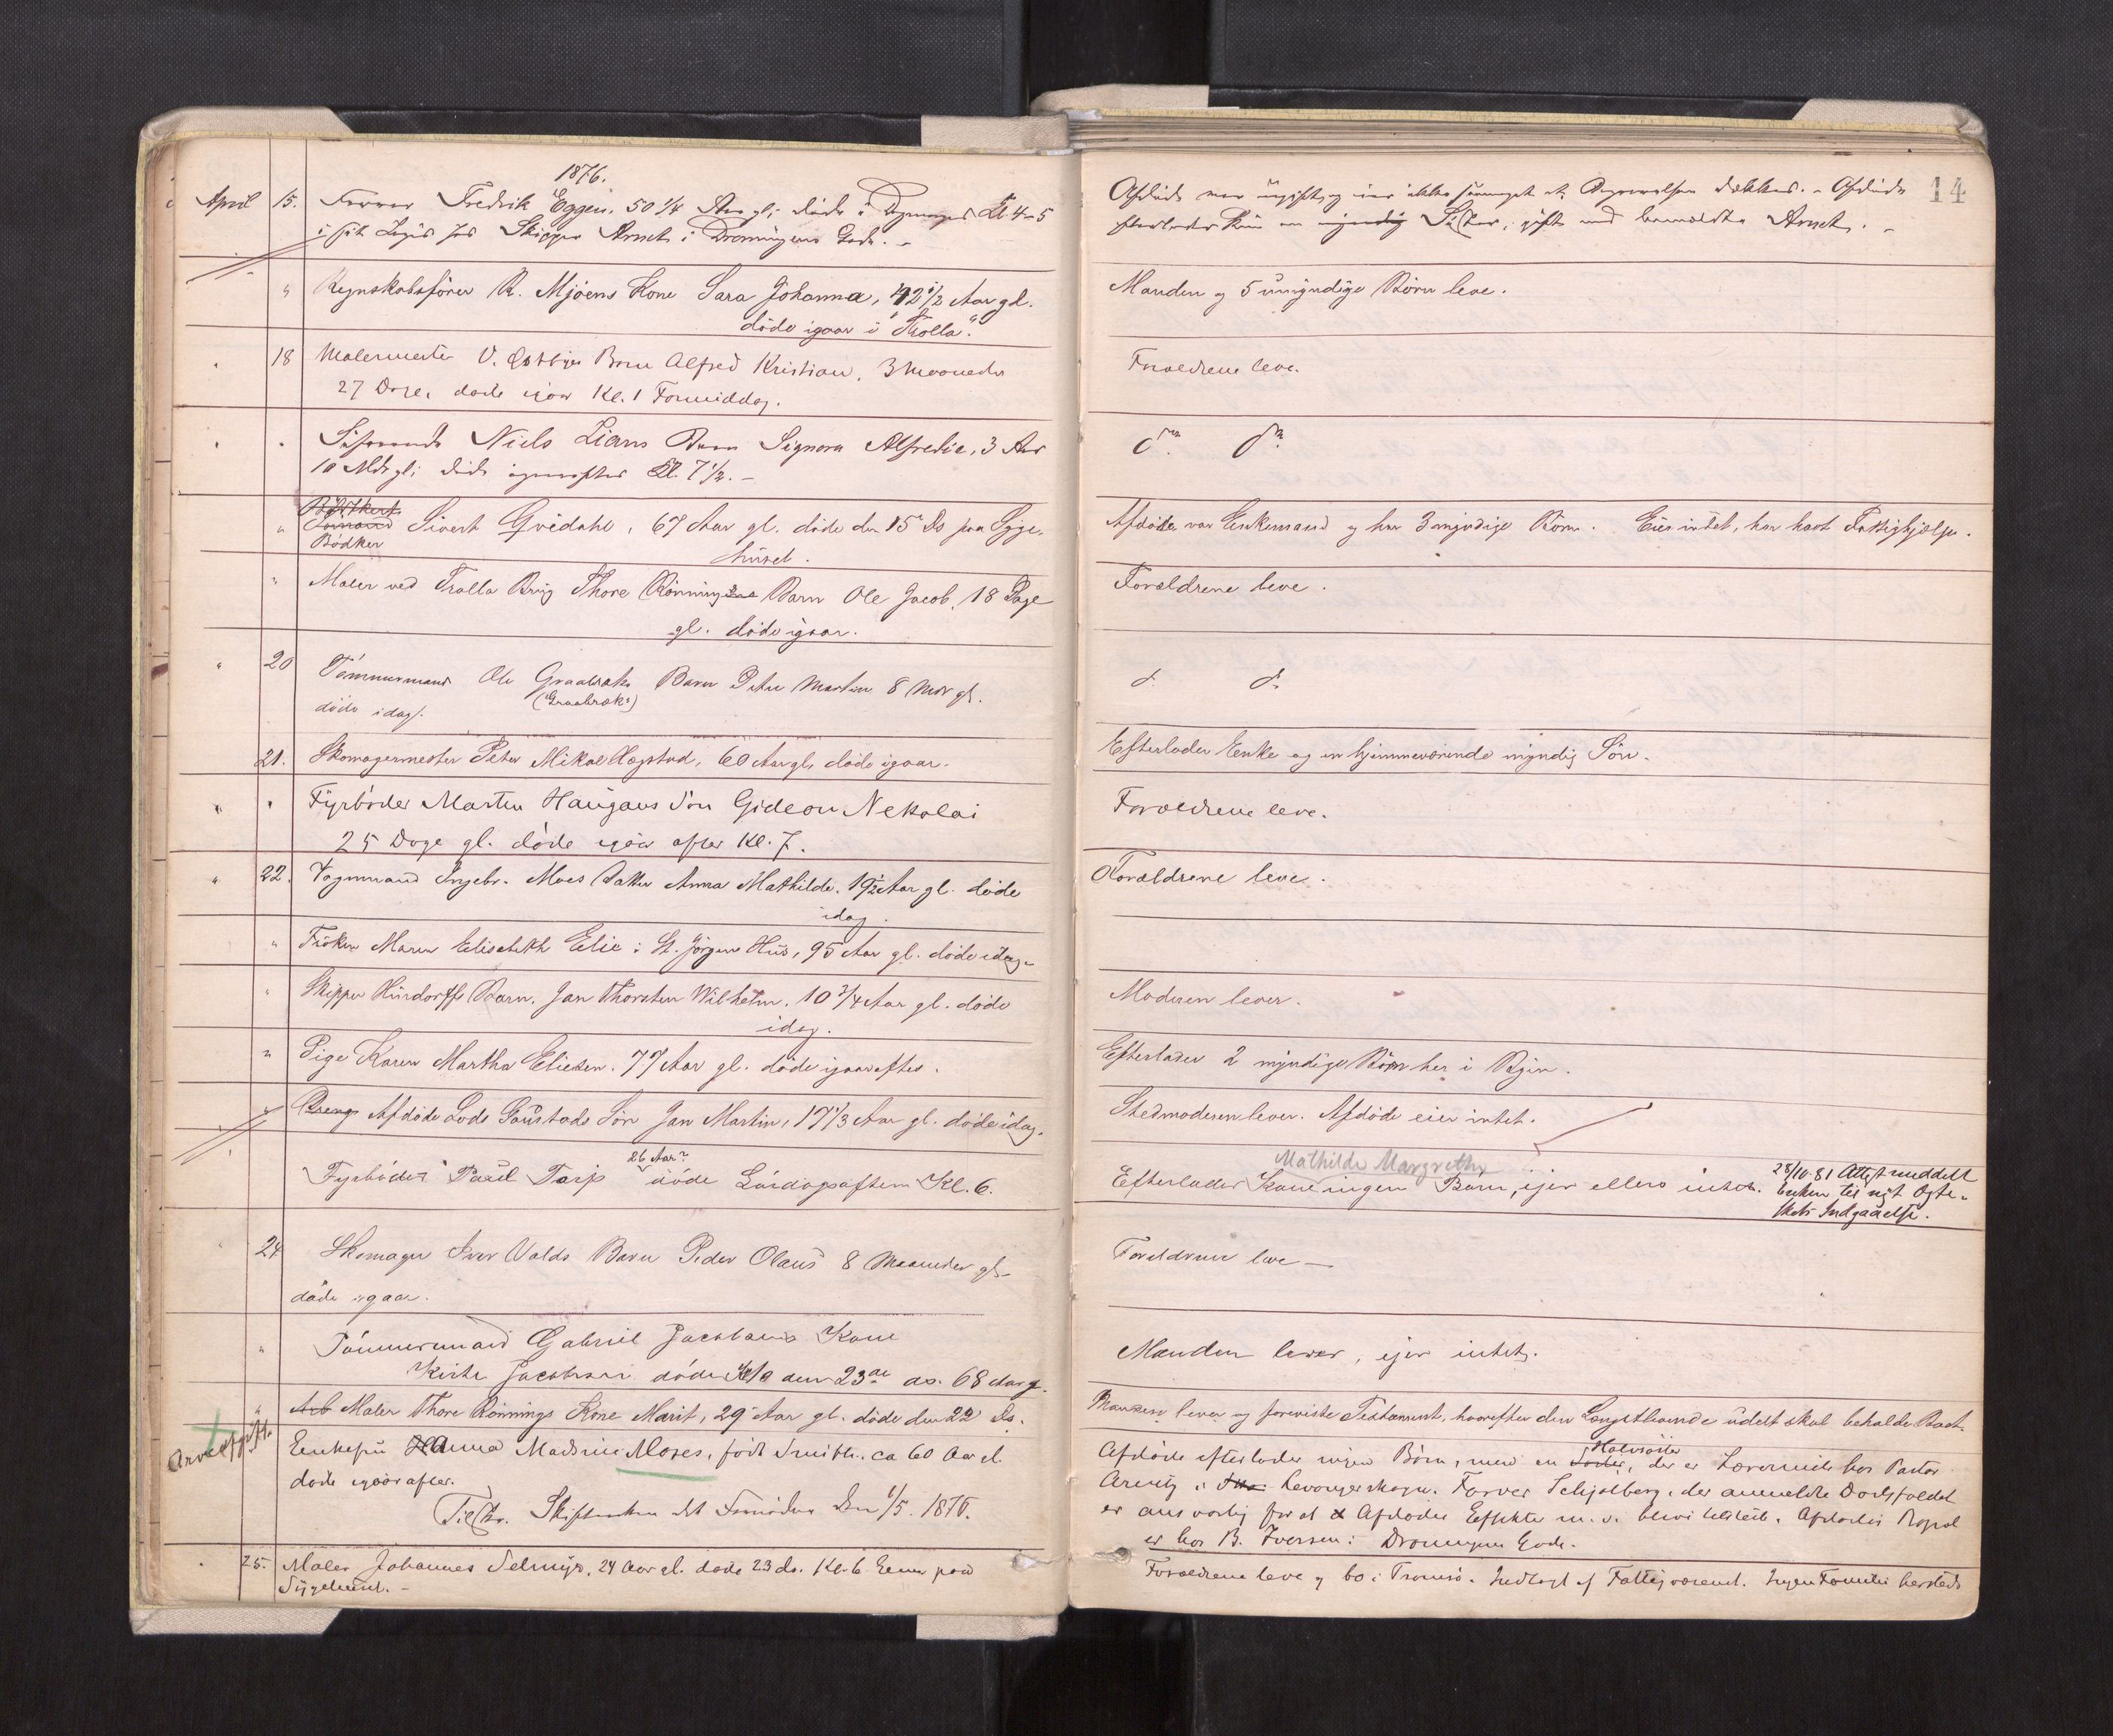 1876.
April 15. Farver Fredrik Eggen, 50 1/4 Aar gl; døde i Dag morges Kl 4-5
i sit Logis hos Skipper Arnet i Dronningens Gade. -
" Regnskabsfører R. Mjøens Kone Sara Johanna, 42 1/2 Aar gl.
døde igaar i "Trolla".
" 18 Malermester O. Barn Alfred Kristian, 3 Maaneder
27 Dage, døde igaar Kl. 1 Formiddag.
" " Niels Lians Barn Signora Alfredie, 3 Aar
10 Mdr gl; døde igaaraftes Kl. 7 1/2. -
" Sømand Sivert Gvidahl, 67 Aar gl. døde den 15 ds paa Syge-
Bødker huset.
" Maler ved Trolla Brug Thore Rønnings Barn Ole Jacob, 18 Dage
gl. døde igaar.
" 20 Tømmermand Ole Barn Peter Martin 8 Mdr gl.
(Graabræks)
døde idag.
21. Skomagermester Peter Mikal Hegstad, 60 Aar gl, døde igaar.
" " Fyrbøder Martin Haugans Søn Gideon Nekolai
25 Dage gl. døde igaar aftes Kl. 7.
" 22. Vognmand Ingebr. Moes Datter Anna Mathilde, 19 1/2 Aar gl. døde
idag.
" Frøken Maren Elisabeth Elie i St. Jørgens Hus, 95 Aar gl. døde idag.
" Skipper Hindorffs Barn, Jan Thorsten Wilhelm, 10 3/4 Aar gl. døde
idag.
" Pige Karen Martha Eliesen. 77 Aar gl. døde igaaraftes.
" Dreng Afdøde Lods Gaustads Søn Jan Martin, 17 1/3 Aar gl. døde idag.
26 Aar?
Fyrbøder Paul Tarp døde Lørdagsaften Kl. 6.
" 24 Skomager Iver Valds Barn Peder Olaus 8 Maaneder gl.
døde igaar.
" Tømmermand Gabriel Jacobsens Kone
Kirsti Jacobsen døde den 23de ds. 68 Aar g.
" Arb Maler Thore Rønnings Kone Marit, 29 Aar gl. døde den 22 ds.
Arveafgift. Enkefru Hanna Madsine Moses, født Smith. ca 60 Aar gl.
døde igaar aftes.
Tilstr. Skifteretten Den 1/5. 1876.
" 25. Maler Johannes Selmys, 24 Aar gl. døde 23 ds. Kl. 6 Em paa
Sygehuset. -
14
Afdøde var ugift, og eier ikke saameget at Begravelsen dækkes. - Afdøde
efterlader kun en myndig Søster, gift med bemeldte Arnet. -
Manden og 5 umyndige Børn leve.
Forældrene leve.
do. do.
Afdøde var Enkemand og har 3 myndige Børn. Eier intet, har havt Fattighjælp.
Forældrene leve.
d. d.
Efterlader Enke og en hjemmeværende myndig Søn.
Forældrene leve.
Forældrene leve.
Moderen lever.
Efterlader 2 myndige Børn her i Byen.
Stedmoderen lever. Afdøde eier intet.
Mathilde Margrethe
Efterlader Kone ingen Børn, ejer ellers intet. 28/10 81 Attest meddelt
Enken til nyt Ægte-
skabs Indgaaelse.
Forældrene leve -
Manden lever, ejer intet.
Manden lever og foreviste Testament, hvorefter den Længstlevende udelt skal beholde Boet.
Halvsøster
Afdøde efterlader ingen Børn, men en Søster, der er Lærerinde hos Pastor
i Levanger Farver Schjølberg, der anmeldte Dødsfaldet
er ansvarlig for at Afdødes Effekter m. v. blive tilstede. Afdødes
er hos B. Iversen i Dronningens Gade.
Forældrene leve og bo i Tromsø. Indlagt af Fattigvæsenet. Ingen Familie hersteds